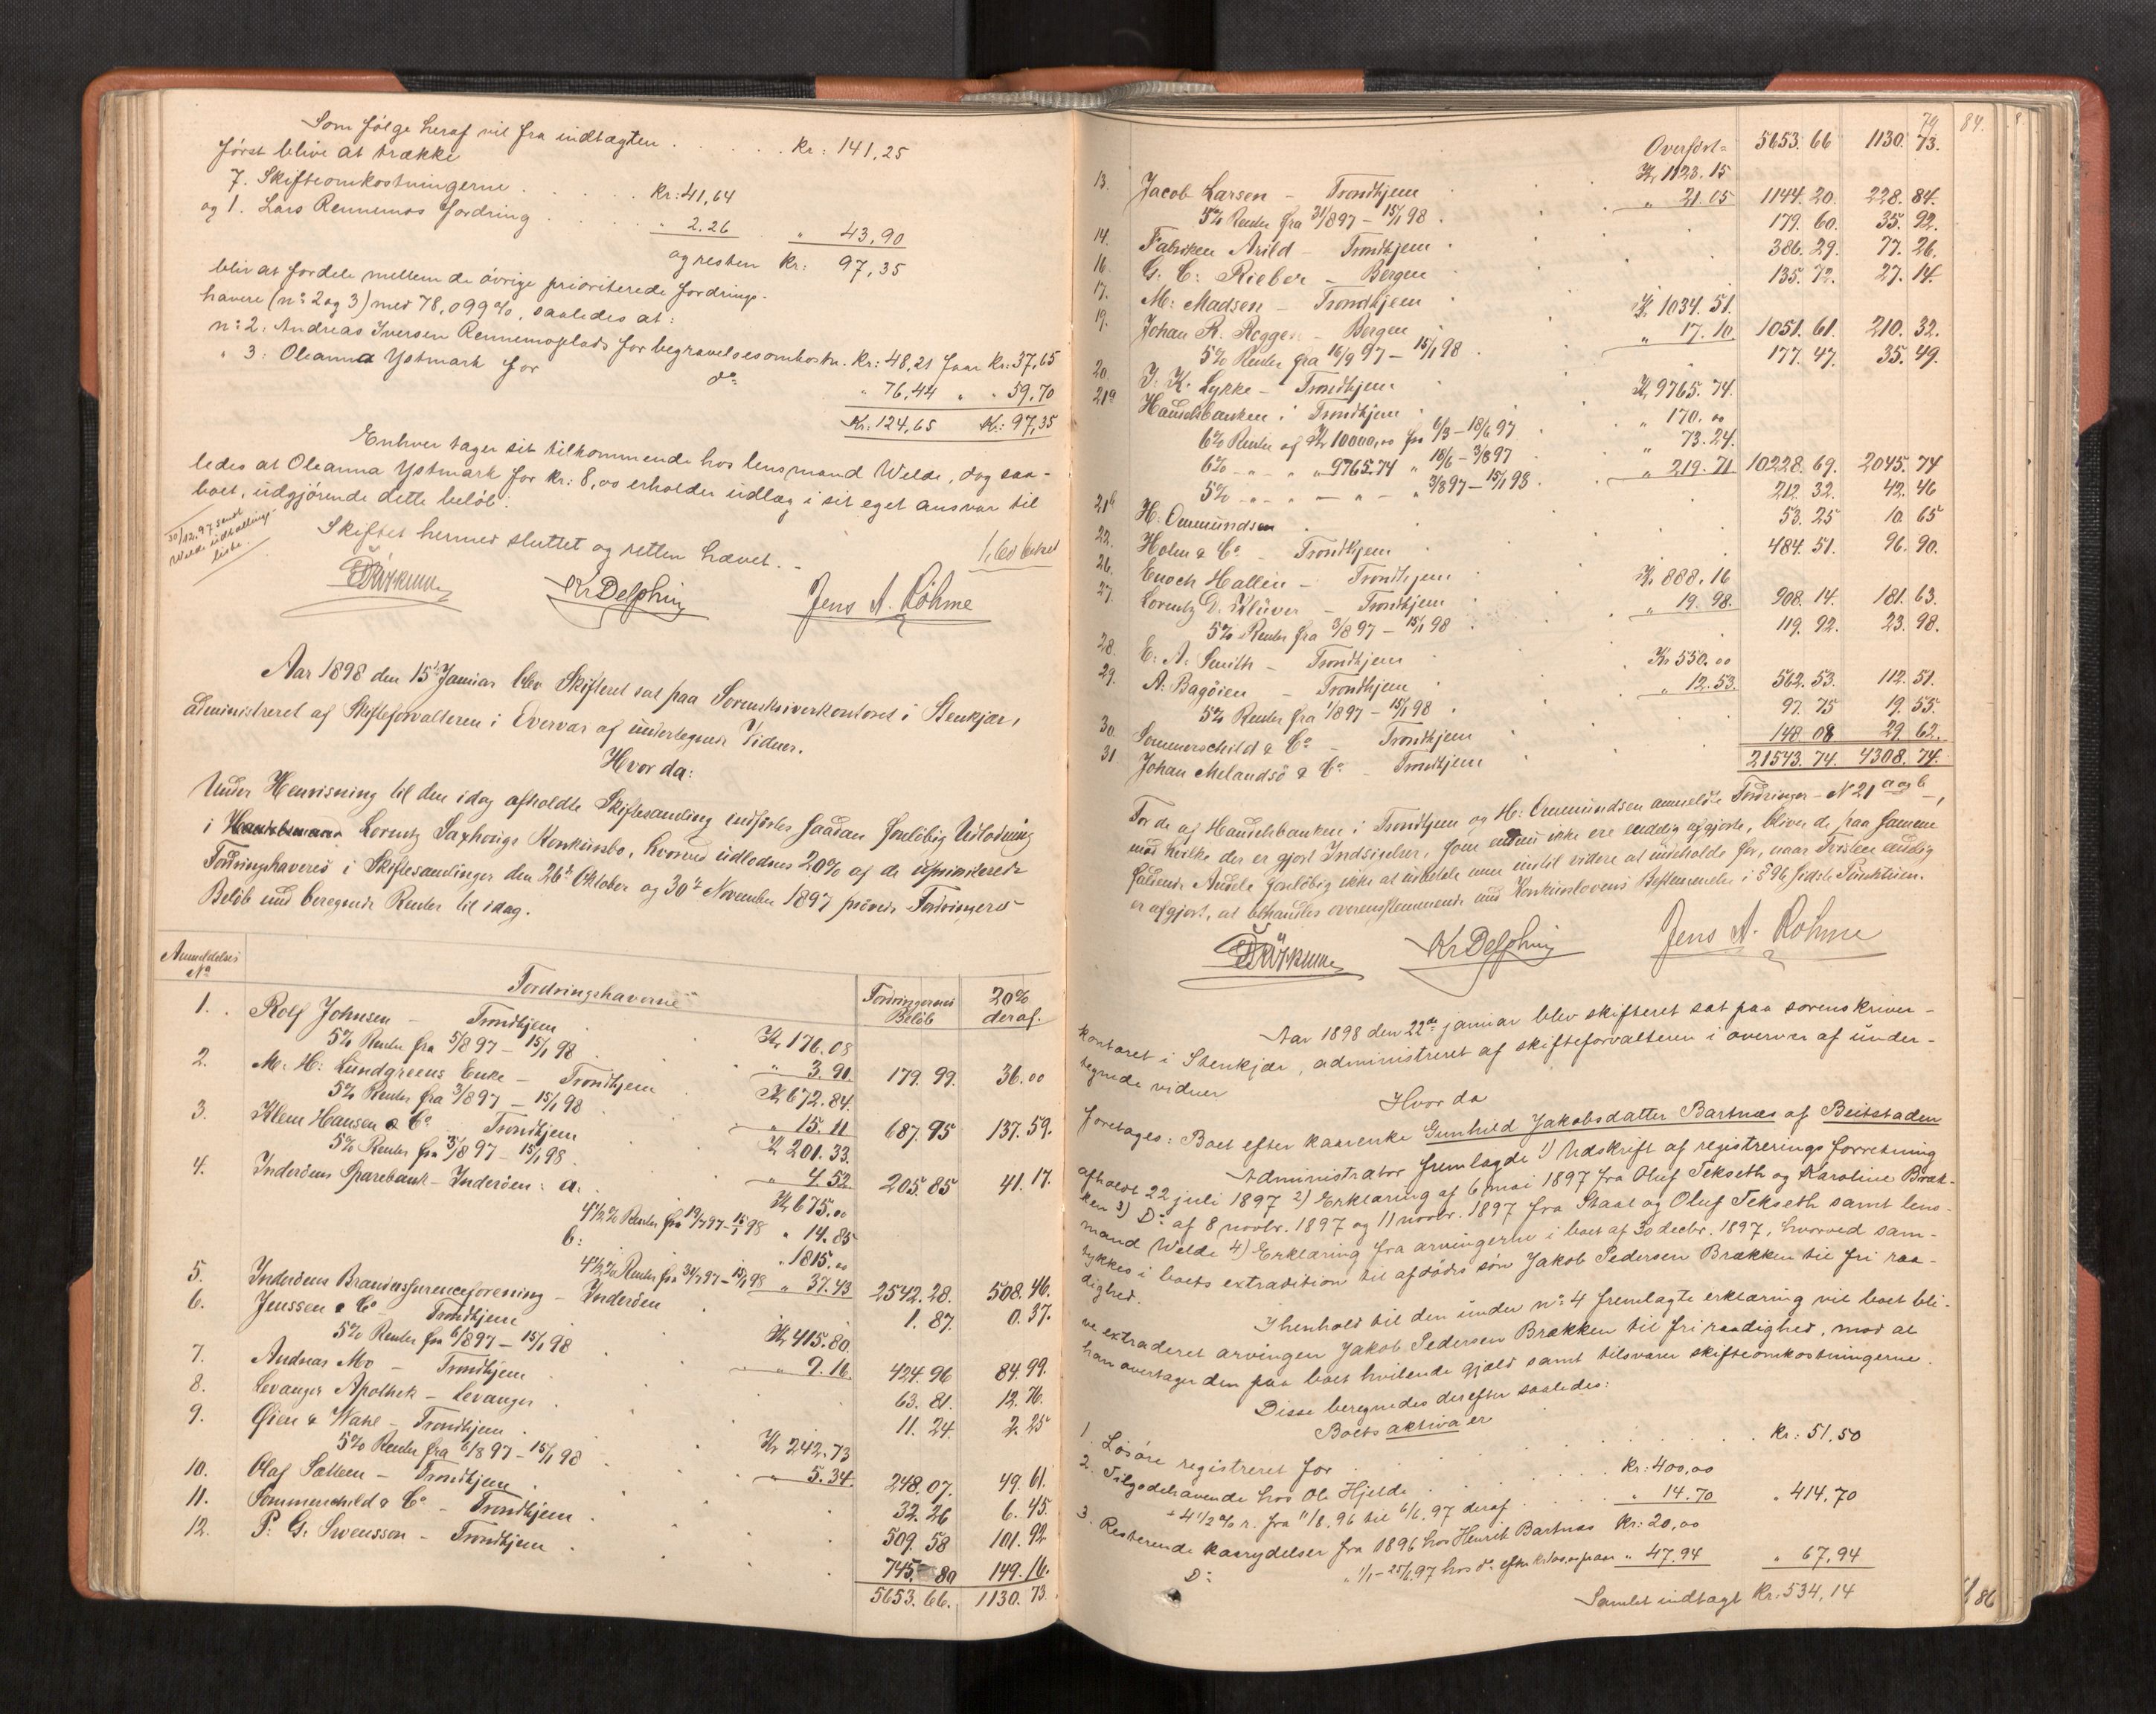 Som følge heraf vil fra indtægten . . . . . kr: 141,25
først blive at trække
7. Skifteomkostningerne . . . . kr: 41,64
og 1. Lars Rennemos fordring . . . " 2.26 " 43,90
og resten kr: 97,35
bliv at fordele mellem de øvrige prioriterede fordrings-
havere (nº 2 og 3) med 78,099 %, saaledes at:
nº 2: Andreas Iversen Rennemsplads for begravelsesomkostn. kr: 48,21 faar kr: 37,65
" 3: Oleanna Ystmark for dº " 76,44 " " 59,70
Kr: 124,65 Kr: 97,35
Enhver tager sit tilkommende hos lensmand Welde, dog saa-
ledes at Oleanna Ystmark for kr: 8,00 erholder udlæg i sit eget ansvar til
boet, udgjørende dette beløb.
30/12.97 sendt
Welde udtallings-
liste.
Skiftet hermed sluttet og retten hævet. -
1,60 betalt
Kr Delphin Jens A. Röhme
Aar 1898 den 15de Januar blev Skifteret sat paa Sorenskriverkontoret i Stenkjær,
administreret af Skifteforvalteren i Overvær af undertegnede Vidner.
Hvor da:
Under Henvisning til den idag afholdte Skiftesamling indførtes saadan foreløbig Udlodning
i Lorentz Saxhaugs Konkursbo, hvorved udloddes 20% af de uprioriterede
Fordringshaveres i Skiftesamlinger den 26de Oktober og 30te November 1897 prøvede Fordringers
Beløb med beregnede Renter til idag.
Anmeldelses
Nº Fordringshaverne Fordringernes Beløb 20% deraf.
1. Rolf Johnsen - Trondhjem Kr 176.08
5% Renter fra 5/8 97 - 15/1 98 " 3.91. 179.99. 36.00
2. M. H. Lundgreens Enke - Trondhjem Kr 672.84.
5% Renter fra 3/8 97 - 15/1 98 " 15.11 687.95 137.59.
3. Klem Hansen & Co Trondhjem Kr 201.33.
5% Renter fra 3/8 97 - 15/1 98 " 4.52. 205.85 41.17.
4. Inderøens Sparebank - Inderøen: a. Kr 675.00
4 1/2 % Renter fra 19/7 97 - 15/1 98 " 14.85
b: " 1815.00
4 1/2 % Renter fra 31/7 97 - 15/1 98 " 37.43 2542.28. 508.46.
5. Inderøens Brandassuranceforening - Inderøen 1.87. 0.37.
6. Jenssen & Co Trondhjem Kr 415.80.
5% Renter fra 6/8 97 - 15/1 98 " 9.16. 424.96 84.99.
7. Andreas Mo - Trondhjem 63.81. 12.76.
8. Levanger Apothek - Levanger 11.24. 2.25
9. Øien & Wahl - Trondhjem Kr 242.73
5% Renter fra 6/8 97 - 15/1 98 " 5.34. 248.07. 49.61.
10. Olaf Sætten - Trondhjem 32.26 6.45.
11. Sommerschild & Co - Trondhjem 509.58 101.92
12. P. G. Svensson - Trondhjem 745.80 149.16.
5653.66. 1130.73.
79 84.
Overført= 5653.66 1130.73.
13. Jacob Larsen - Trondhjem Kr 1123.15
5% Renter fra 31/8 97 - 15/1 98 " 21.05 1144.20. 228.84.
14. Fabriken Arild - Trondhjem 179.60. 35.92.
16. G. C. Rieber - Bergen 386.29. 77.26.
17. M. Madsen - Trondhjem 135.72. 27.14.
19. Johan R. Roggen - Bergen Kr 1034.51.
5% Renter fra 16/9 97 - 15/1 98 " 17.10. 1051.61. 210.32.
20. I. K. Lykke - Trondhjem 177.47. 35.49.
21a Handelsbanken i Trondhjem Kr 9765.74.
6% Renter af Kr 10000,00 fra 6/3 - 18/6 97 " 170.00
6% - " - " 9765.74 " 18/6 - 3/8 97 " 73.24.
5% - " - " - " - " 3/8 97 - 15/1 98 " 219.71 10228.69. 2045.74
21b H. Ommundsen 212.32. 42.46
22. Holm & Co - Trondhjem 53.25 10.65
26. Enoch Hallin - Trondhjem 484.51. 96.90.
27. Lorentz D. Klüver - Trondhjem Kr 888.16
5% Renter fra 3/8 97 - 15/1 98 " 19.98. 908.14. 181.63.
28. E. A. Smith - Trondhjem 119.92. 23.98.
29. A. Bagøien - Trondhjem Kr 550.00
5% Renter fra 1/8 97 - 15/1 98 " 12.53. 562.53. 112.51.
30. Sommerschild & Co - Trondhjem 97.75 19.55.
31. Johan Melandsö & Co - Trondhjem 148.08 29.62.
21543.74. 4308.74.
For de af Handelsbanken i Trondhjem og H. Ommundsen anmeldte Fordringer - Nº 21 a og b -,
mod hvilke der er gjort Indsigelser, som endnu ikke ere endelig afgjorte, bliver de paa samme
faldende Andele foreløbig ikke at udbetale men indtil videre at indeholde for, naar Tvisten endelig
er afgjort, at behandles overensstemmende med Konkurslovens Bestemmelse i § 96 sidste Punktum.
Kr Delphin Jens A. Röhme
Aar 1898 den 22de januar blev skifteret sat paa sorenskriver-
kontoret i Stenkjær, administreret af skifteforvalteren i overvær af under-
tegnede vidner
Hvor da
foretages: Boet efter kaarenke Gunhild Jakobsdatter Bartnæs af Beitstaden
Administrator fremlagde 1) Udskrift af registreringsforretning
afholdt 22 juli 1897 2) Erklæring af 6 mai 1897 fra Oluf Tekseth og Karoline Bræk-
ken 3) Dº af 8 novbr. 1897 og 11 novbr. 1897 fra Staal og Oluf Tekseth samt lens-
mand Welde 4) Erklæring fra arvingerne i boet af 30 decbr. 1897, hvorved sam-
tykkes i boets extradition til afdødes søn Jakob Pedersen Brækken til fri raa-
dighed.
I henhold til den under nº 4 fremlagte erklæring vil boet bli-
ve extraderet arvingen Jakob Pedersen Brækken til fri raadighed, mod at
han overtager den paa boet hvilende gjæld samt tilsvarer skifteomkostningerne.
Disse beregnedes derefter saaledes:
Boets aktiva er
1. Løsøre registreret for . . . . kr: 51,50
2. Tilgodehavende hos Ole Hjelde . . . kr: 400,00
+ 4 1/2 % r. fra 11/8.96 til 6/6.97 deraf " 14.70 " 414,70
3. Resterende kaarydelser fra 1896 hos Henrik Bartnæs kr: 20,00
Dº " 1/1 - 25/6.97 hos dº " 47.94 " 67,94
Samlet indtægt kr. 534,14
86